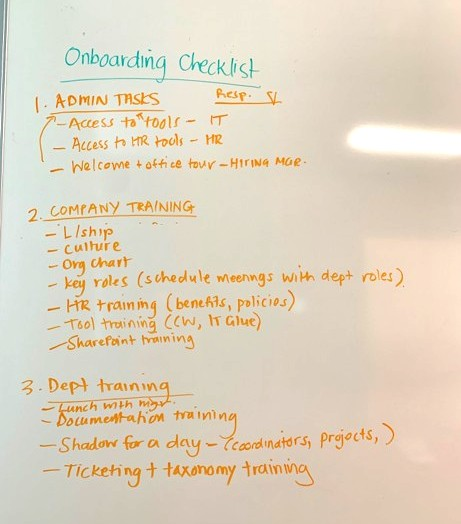 Onboarding Checklist
1. ADMIN TASKS Resp.
- Access to tools - IT
- Access to HR tools - HR
- Welcome + office tour - HIRING MGR.
2. COMPANY TRAINING
- L/ship
- Culture
- Org Chart
- Key roles (schedule meetings with dept roles)
- HR training (benefits, policies)
- Tool training (CW, IT Glue)
- SharePoint training
3. Dept training
- Lunch with mgr.
- Documentation training
- Shadow for a day - (coordinators, projects, )
- Ticketing + taxonomy training